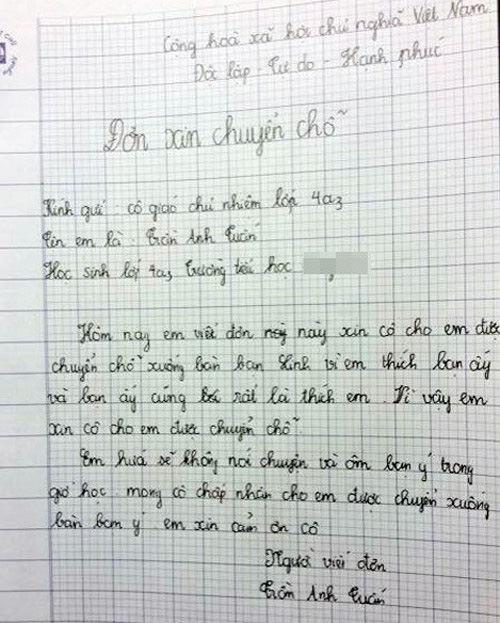 Cộng hoà xã hội chủ nghĩa Việt Nam
Độc lập - Tự do - Hạnh phúc
Đơn xin chuyển chỗ
Kính gửi cô giáo chủ nhiệm lớp 4a3
Tên em là : Trần Anh Tuấn
Học sinh lớp 4a3 trường tiểu học
Hôm nay em viết đơn này xin cô cho em được
chuyển chỗ xuống bàn bạn Linh vì em thích bạn ấy
và bạn ấy cũng rất là thích em. Vì vậy em
xin cô cho em được chuyển chỗ.
Em hứa sẽ không nói chuyện và ôm bạn ý trong
giờ học. mong cô chấp nhận cho em được chuyển xuống
bàn bạn ý. em xin cảm ơn cô
Người viết đơn
Trần Anh Tuấn